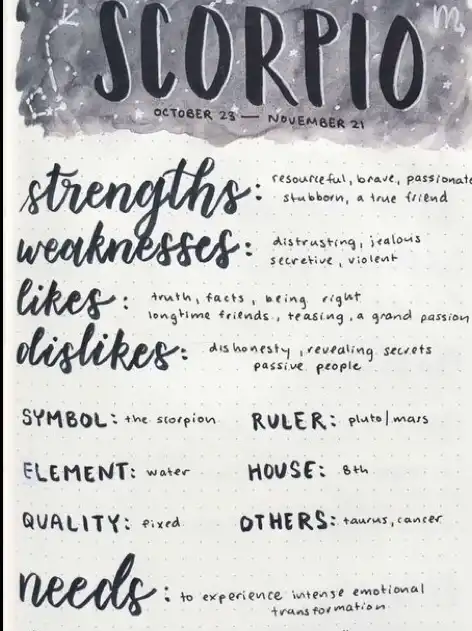 SCORPIO
OCTOBER 23 — NOVEMBER 21
strengths: resourceful, brave, passionate
stubborn, a true friend
weaknesses: distrusting, jealous
secretive, violent
likes: truth, facts, being right
longtime friends, teasing, a grand passion
dislikes: dishonesty, revealing secrets
passive people
SYMBOL: the scorpion RULER: pluto|mars
ELEMENT: water HOUSE: 8th
QUALITY: fixed OTHERS: taurus, cancer
needs: to experience intense emotional
transformation